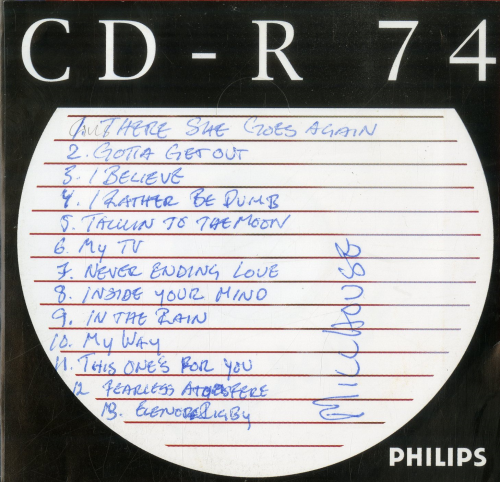 CD-R 74
1. THERE SHE GOES AGAIN
2. GOTTA GET OUT
3. I BELIEVE
4. I RATHER BE DUMB
5. TALKIN TO THE MOON
6. MY TV
7. NEVER ENDING LOVE
8. INSIDE YOUR MIND
9. IN THE RAIN
10. MY WAY
11. THIS ONE'S FOR YOU
12 FEARLESS
13. RIGBY
MILLHOUSE
PHILIPS